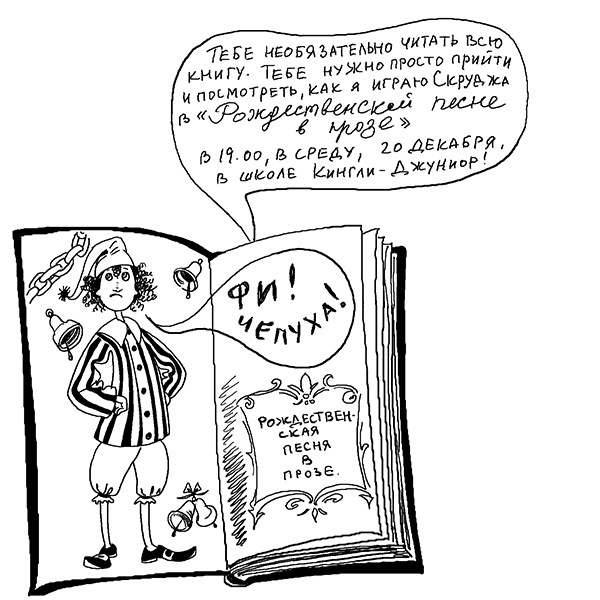 ТЕБЕ НЕОБЯЗАТЕЛЬНО ЧИТАТЬ ВСЮ
КНИГУ. ТЕБЕ НУЖНО ПРОСТО ПРИЙТИ
И ПОСМОТРЕТЬ, КАК Я ИГРАЮ СКРУДЖА
В «Рождественской песне
в прозе»
В 19.00, В СРЕДУ, 20 ДЕКАБРЯ,
В ШКОЛЕ КИНГЛИ-ДЖУНИОР!
ФИ!
ЧЕПУХА!
РОЖДЕСТВЕН-
СКАЯ
ПЕСНЯ
В
ПРОЗЕ.